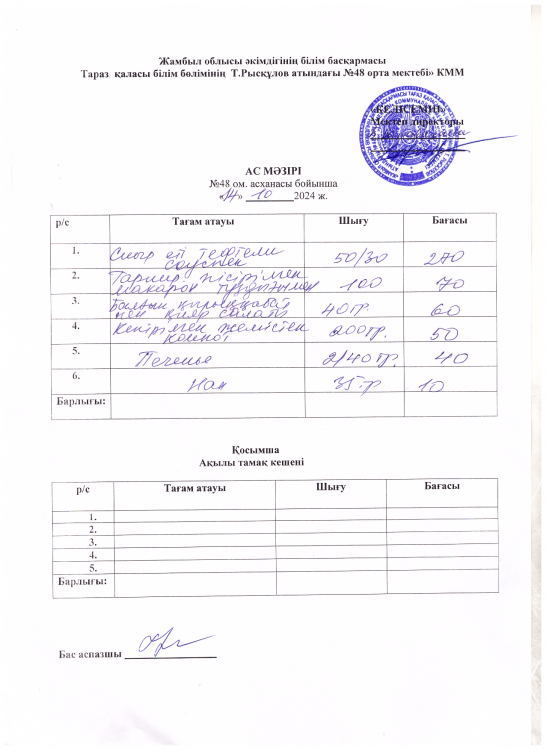 Жамбыл облысы әкімдігінің білім басқармасы
Тараз қаласы білім бөлімінің Т.Рысқұлов атындағы №48 орта мектебі» КММ
«КЕЛІСЕМІН»
Мектеп директоры
АС МӘЗІРІ
№48 ом. асханасы бойынша
«14» 10 2024 ж.
р/с Тағам атауы Шығу Бағасы
1. Сиыр еті тефтели соуспен 50/30 270
2. Гарнир пісірілмен макарон 100 70
3. қырыққабат
мен қияр салаты 40 гр. 60
4. Кептірілмен жемістен
компот 200 гр. 50
5. Печенье 2/40 гр. 40
6. Нан 35 гр 10
Барлығы:
Қосымша
Ақылы тамақ кешені
р/с Тағам атауы Шығу Бағасы
1.
2.
3.
4.
5.
Барлығы:
Бас аспазшы